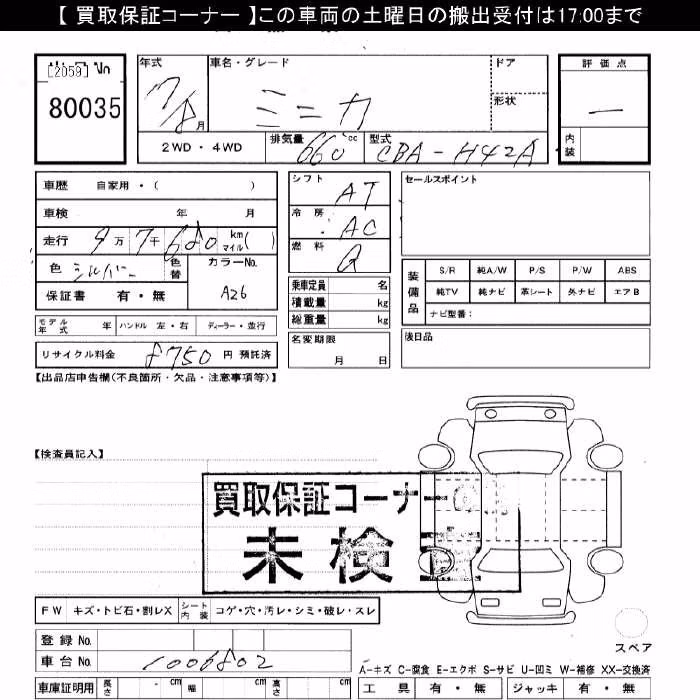 【 買取保証コーナー 】この車両の土曜日の搬出受付は17:00まで
[2059] No
80035
年式
17/8 月
車名・グレード
ミニカ
ドア
形状
評価点
―
内装
2WD・4WD
排気量 660 cc
型式 CBA-H42A
車歴 自家用・( )
車検 年 月
走行 9万7千680 km マイル( )
色 シルバー 色替
カラーNo. A26
保証書 有・無
シフト AT
冷房 AC
燃料 G
乗車定員 名
積載量 kg
総重量 kg
名変期限 月 日
セールスポイント
装備品
S/R 純A/W P/S P/W ABS
純TV 純ナビ 革シート 外ナビ エアB
ナビ型番:
後日品
モデル年式 年 ハンドル 左・右 ディーラー・並行
リサイクル料金 8750 円 預託済
【出品店申告欄(不良箇所・欠品・注意事項等)】
【検査員記入】
買取保証コーナー
未検
FW キズ・トビ石・割レX シート内装 コゲ・穴・汚レ・シミ・破レ・スレ
登録 No.
車台 No. 1006802
車庫証明用 長さ cm 幅 cm 高さ cm
スペア
A-キズ C-腐食 E-エクボ S-サビ U-凹ミ W-補修 XX-交換済
工具 有・無 ジャッキ 有・無